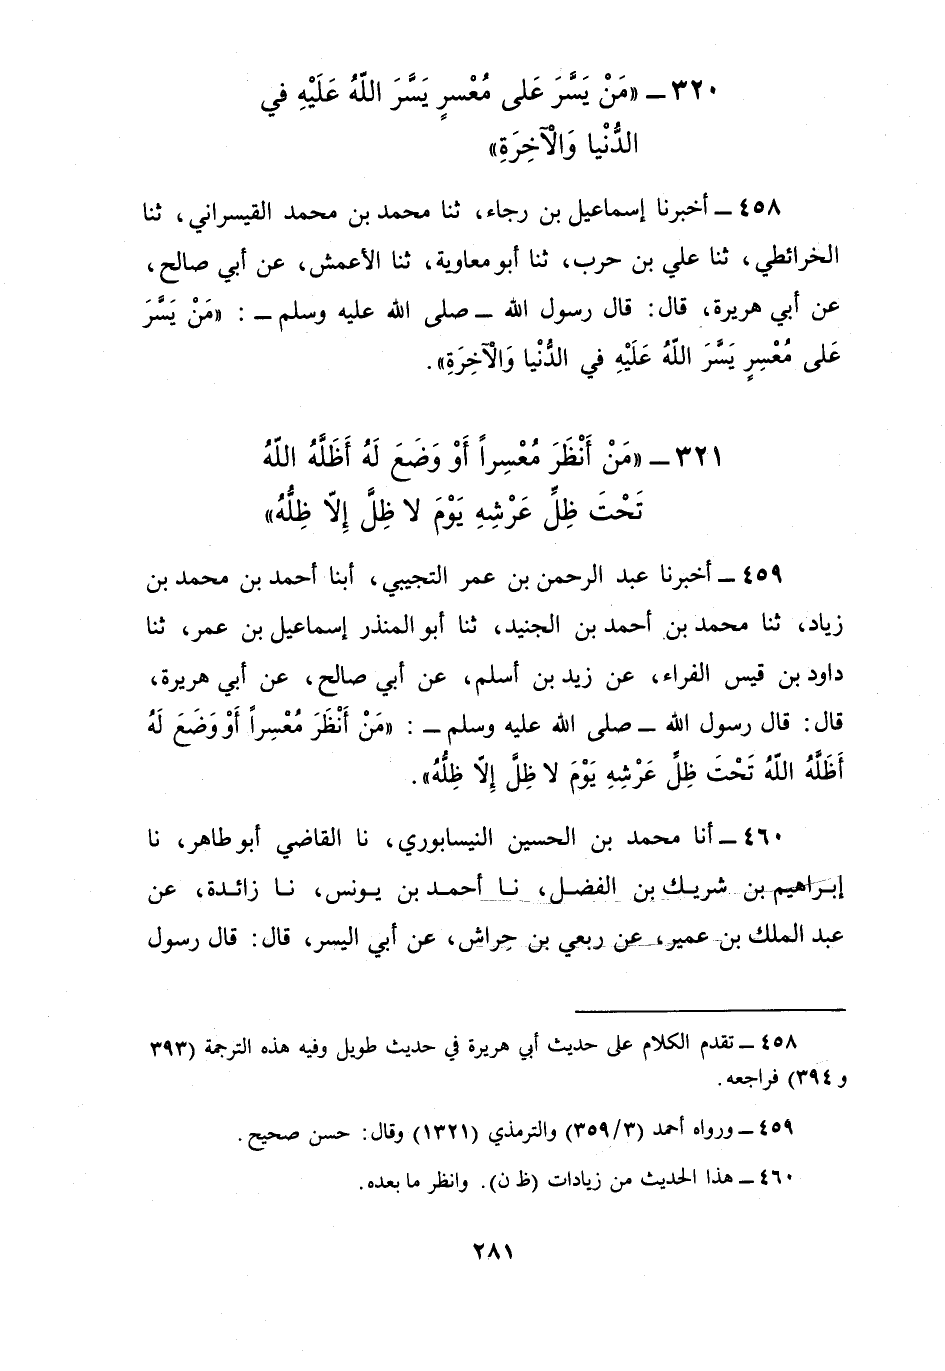 ٣٢٠ ــ «مَنْ يَسَّرَ عَلى مُعْسرٍ يَسَّرَ اللّهُ عَلَيْهِ في
الدُّنْيا وَالْآخِرَةِ»
٤٥٨ ــ أخبرنا إسماعيل بن رجاء، ثنا محمد بن محمد القيسراني، ثنا
الخرائطي، ثنا علي بن حرب، ثنا أبو معاوية، ثنا الأعمش، عن أبي صالح،
عن أبي هريرة، قال: قال رسول الله ــ صلى الله عليه وسلم ــ : «مَنْ يَسَّرَ
عَلى مُعْسِرٍ يَسَّرَ اللّهُ عَلَيْهِ في الدُّنْيا وَالْآخِرَةِ».
٣٢١ ــ «مَنْ أَنْظَرَ مُعْسِراً أَوْ وَضَعَ لَهُ أَظَلَّهُ اللّهُ
تَحْتَ ظِلِّ عَرْشِهِ يَوْمَ لا ظِلَّ إِلاّ ظِلُّهُ»
٤٥٩ ــ أخبرنا عبد الرحمن بن عمر التجيبي، أبنا أحمد بن محمد بن
زياد، ثنا محمد بن أحمد بن الجنيد، ثنا أبو المنذر إسماعيل بن عمر، ثنا
داود بن قيس الفراء، عن زيد بن أسلم، عن أبي صالح، عن أبي هريرة،
قال: قال رسول الله ــ صلى الله عليه وسلم ــ : «مَنْ أَنْظَرَ مُعْسِراً أَوْ وَضَعَ لَهُ
أَظَلَّهُ اللّهُ تَحْتَ ظِلِّ عَرْشِهِ يَوْمَ لا ظِلَّ إِلاّ ظِلُّهُ».
٤٦٠ ــ أنا محمد بن الحسين النيسابوري، نا القاضي أبو طاهر، نا
إبراهيم بن شريك بن الفضل، نا أحمد بن يونس، نا زائدة، عن
عبد الملك بن عمير، عن ربعي بن حِراش، عن أبي اليسر، قال: قال رسول
٤٥٨ ــ تقدم الكلام على حديث أبي هريرة في حديث طويل وفيه هذه الترجمة (٣٩٣
و ٣٩٤) فراجعه.
٤٥٩ ــ ورواه أحمد (٣٥٩/٣) والترمذي (١٣٢١) وقال: حسن صحيح.
٤٦٠ ــ هذا الحديث من زيادات (ظ ن). وانظر ما بعده.
٢٨١